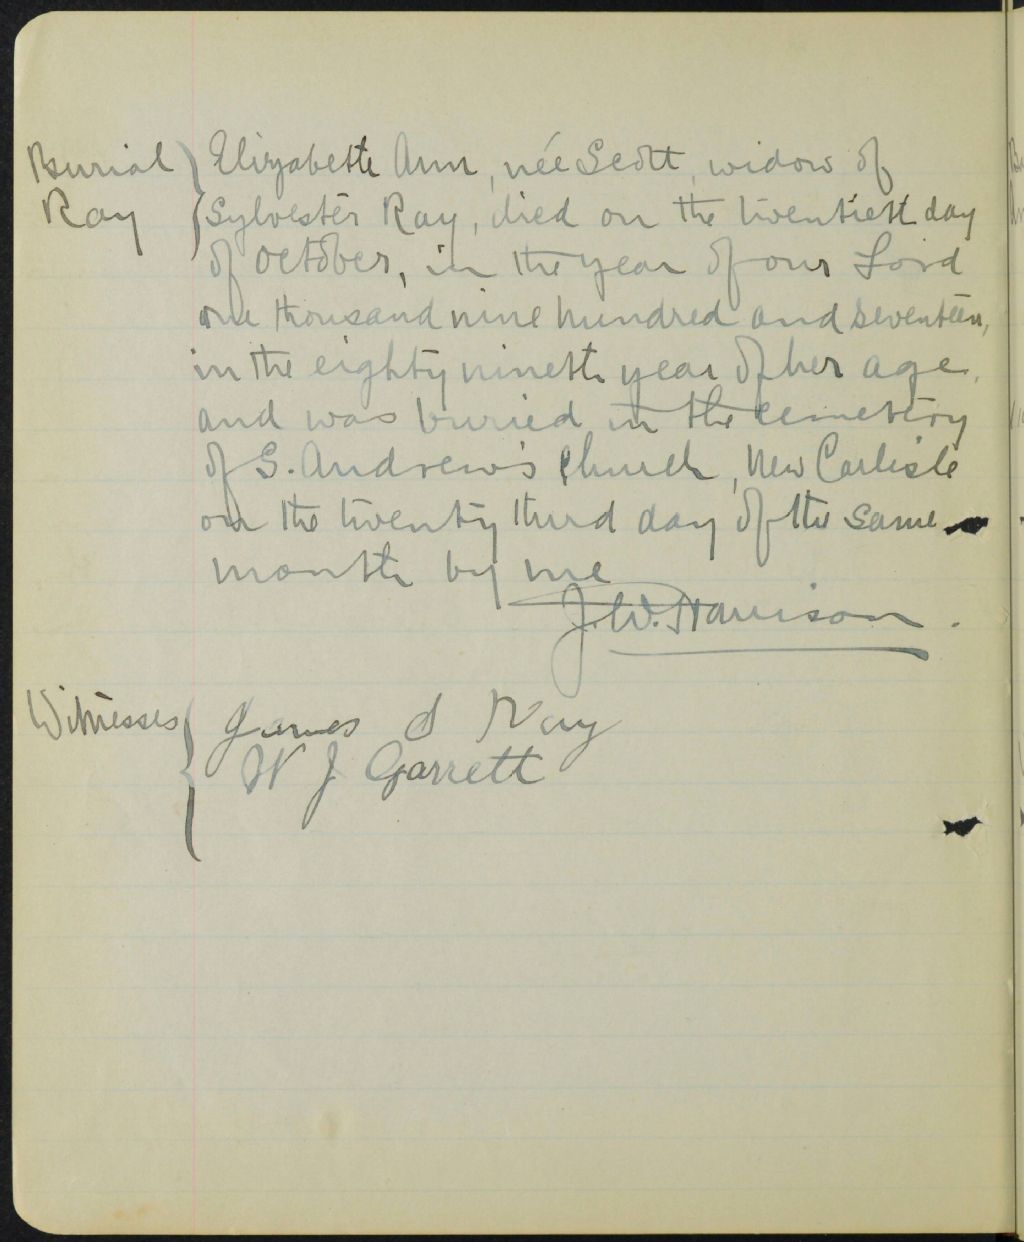 Burial
Ray
Elizabeth Ann, née Scott, widow of
Sylvester Ray, died on the twentieth day
of October, in the year of our Lord
one thousand nine hundred and seventeen,
in the eighty nineth year of her age,
and was buried in the cemetery
of S. Andrew's Church, New Carlisle
on the twenty third day of the same
month by me
J. W. Harrison.
Witnesses
James S Ray
W J Garrett